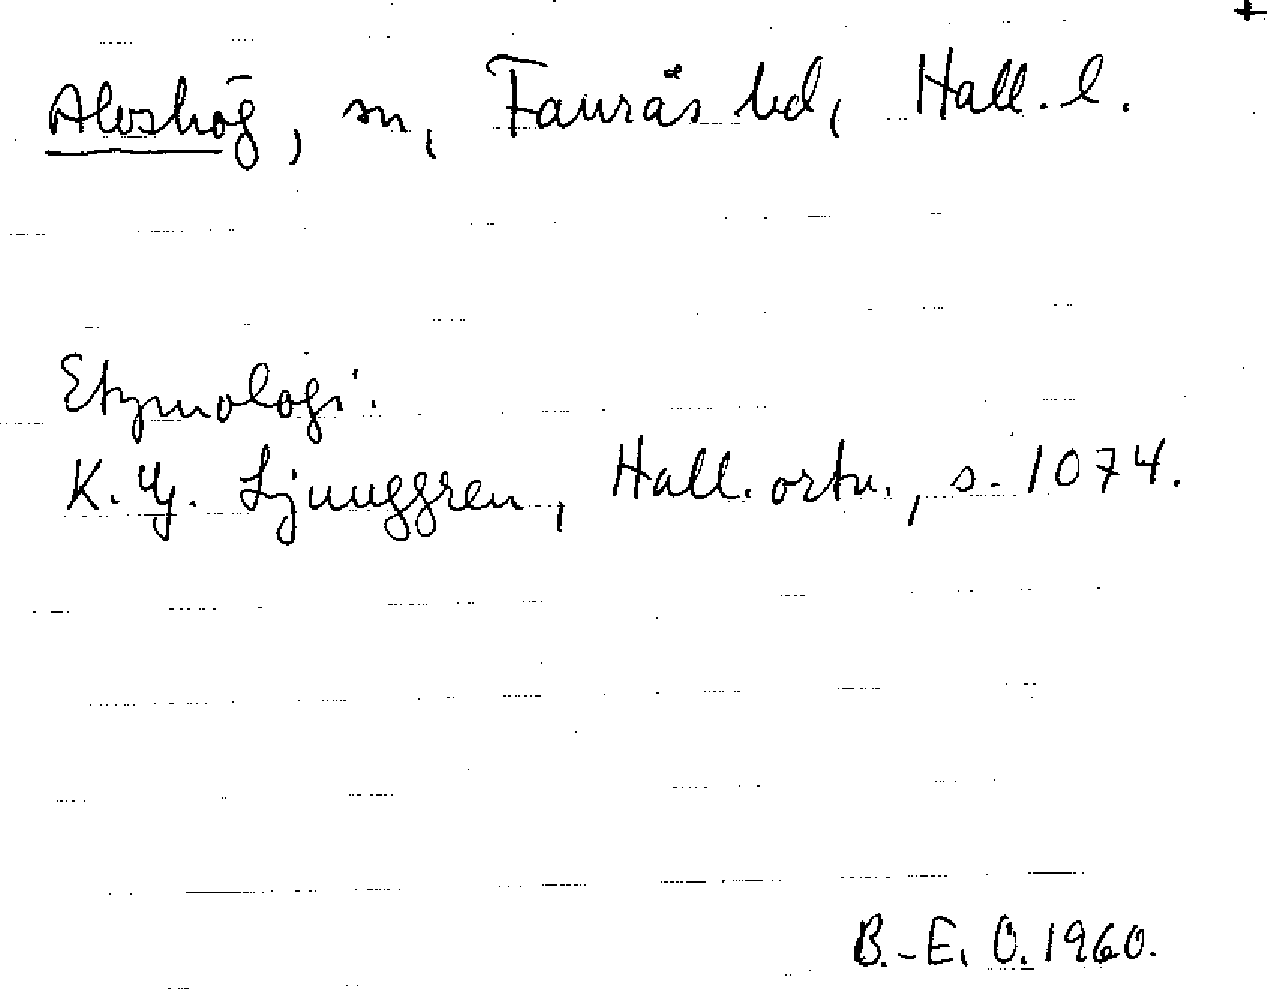 +
Alvshög, sn, Faurås hd, Hall. l.
Etymologi:
K. G. Ljunggren, Hall. ortn., s. 1074.
B.-E. O. 1960.